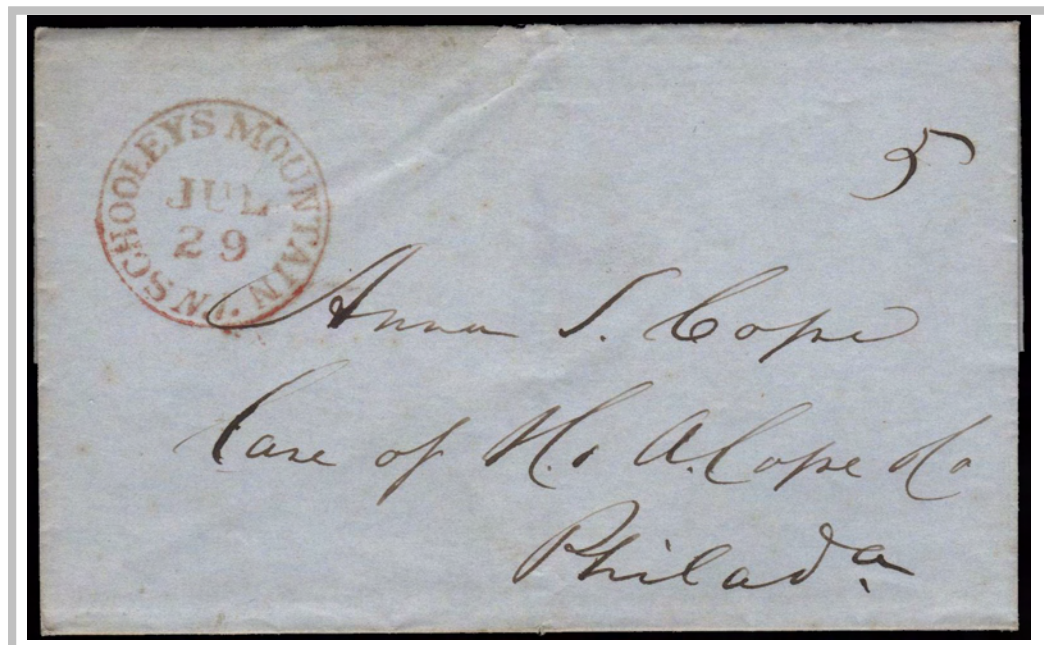 SCHOOLEYS MOUNTAIN
JUL
29
5
Anna S. Cope
Care of H. & A. Cope & Co
Philadᵃ